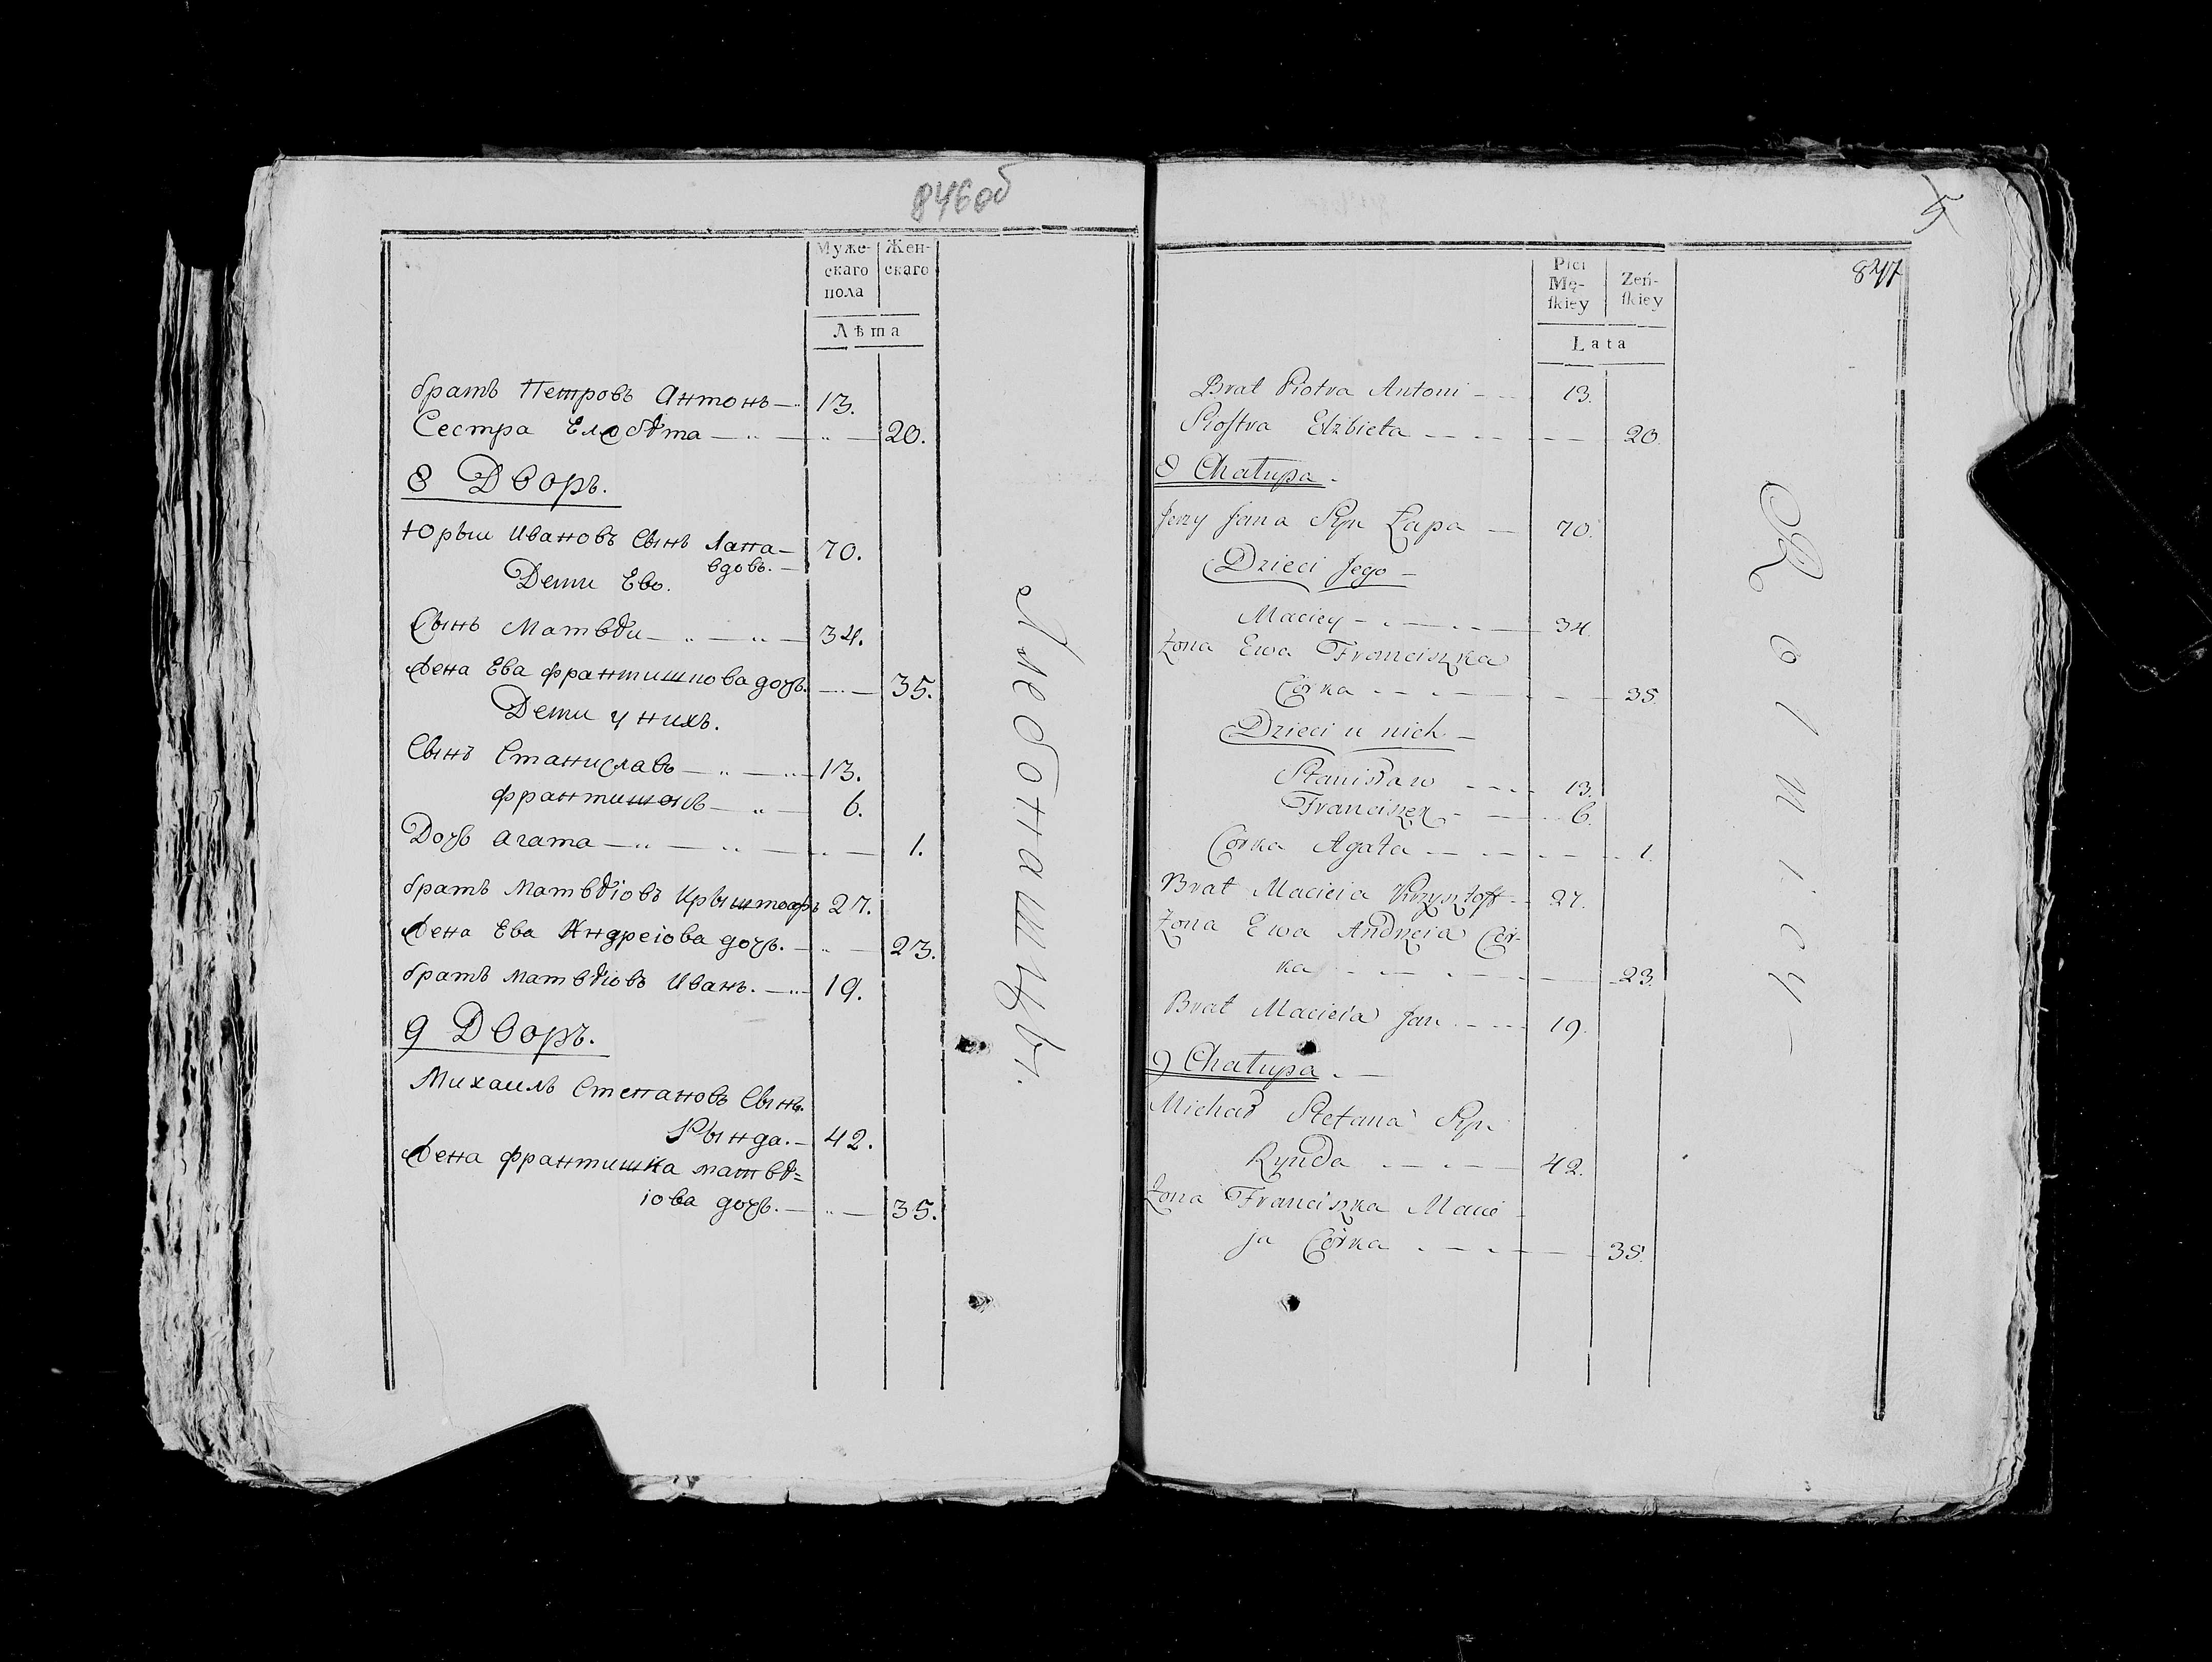 846об
Муже-
скаго
пола
Жен-
скаго
Лѣта
братъ Петровъ Антонъ 13.
Сестра Елсбѣта 20.
8 Дворъ.
Юрьи Ивановъ Сынъ Лапа 70.
вдовъ.
Дети Ево.
Сынъ Матвѣи 34.
Жена Ева франтишкова дочь. 35.
Дети у нихъ.
Сынъ Станиславъ 13.
франтишекъ 6.
Дочь агата 1.
братъ Матвѣіовъ Крыштофъ 27.
Жена Ева Андреіова дочь. 23.
братъ Матвѣіовъ Иванъ. 19.
9 Дворъ.
Михаилъ Степановъ Сынъ.
Рында. 42.
Жена франтишка матвѣ=
іова дочь. 35.
5
847
Płci
Mę-
ſkiey
Zeń-
ſkiey
Lata
Brat Piotra Antoni 13.
Sioſtra Elżbieta 20
8 Chałupa.
Jerzy Jana Syn Łapa 70.
Dzieci Jego
Maciey 34.
Żona Ewa Franciszka
Corka 35
Dzieci u nich
Stanisław 13.
Franciszek 6.
Corka Agata 1.
Brat Macieia Krzysztoff 27.
Żona Ewa Andrzeia Cór-
ka 23.
Brat Macieia Jan 19.
9 Chałupa.
Michał Stefana Syn
Rynda 42.
Żona Franciszka Macie
ja Córka 35.
Rolnicy